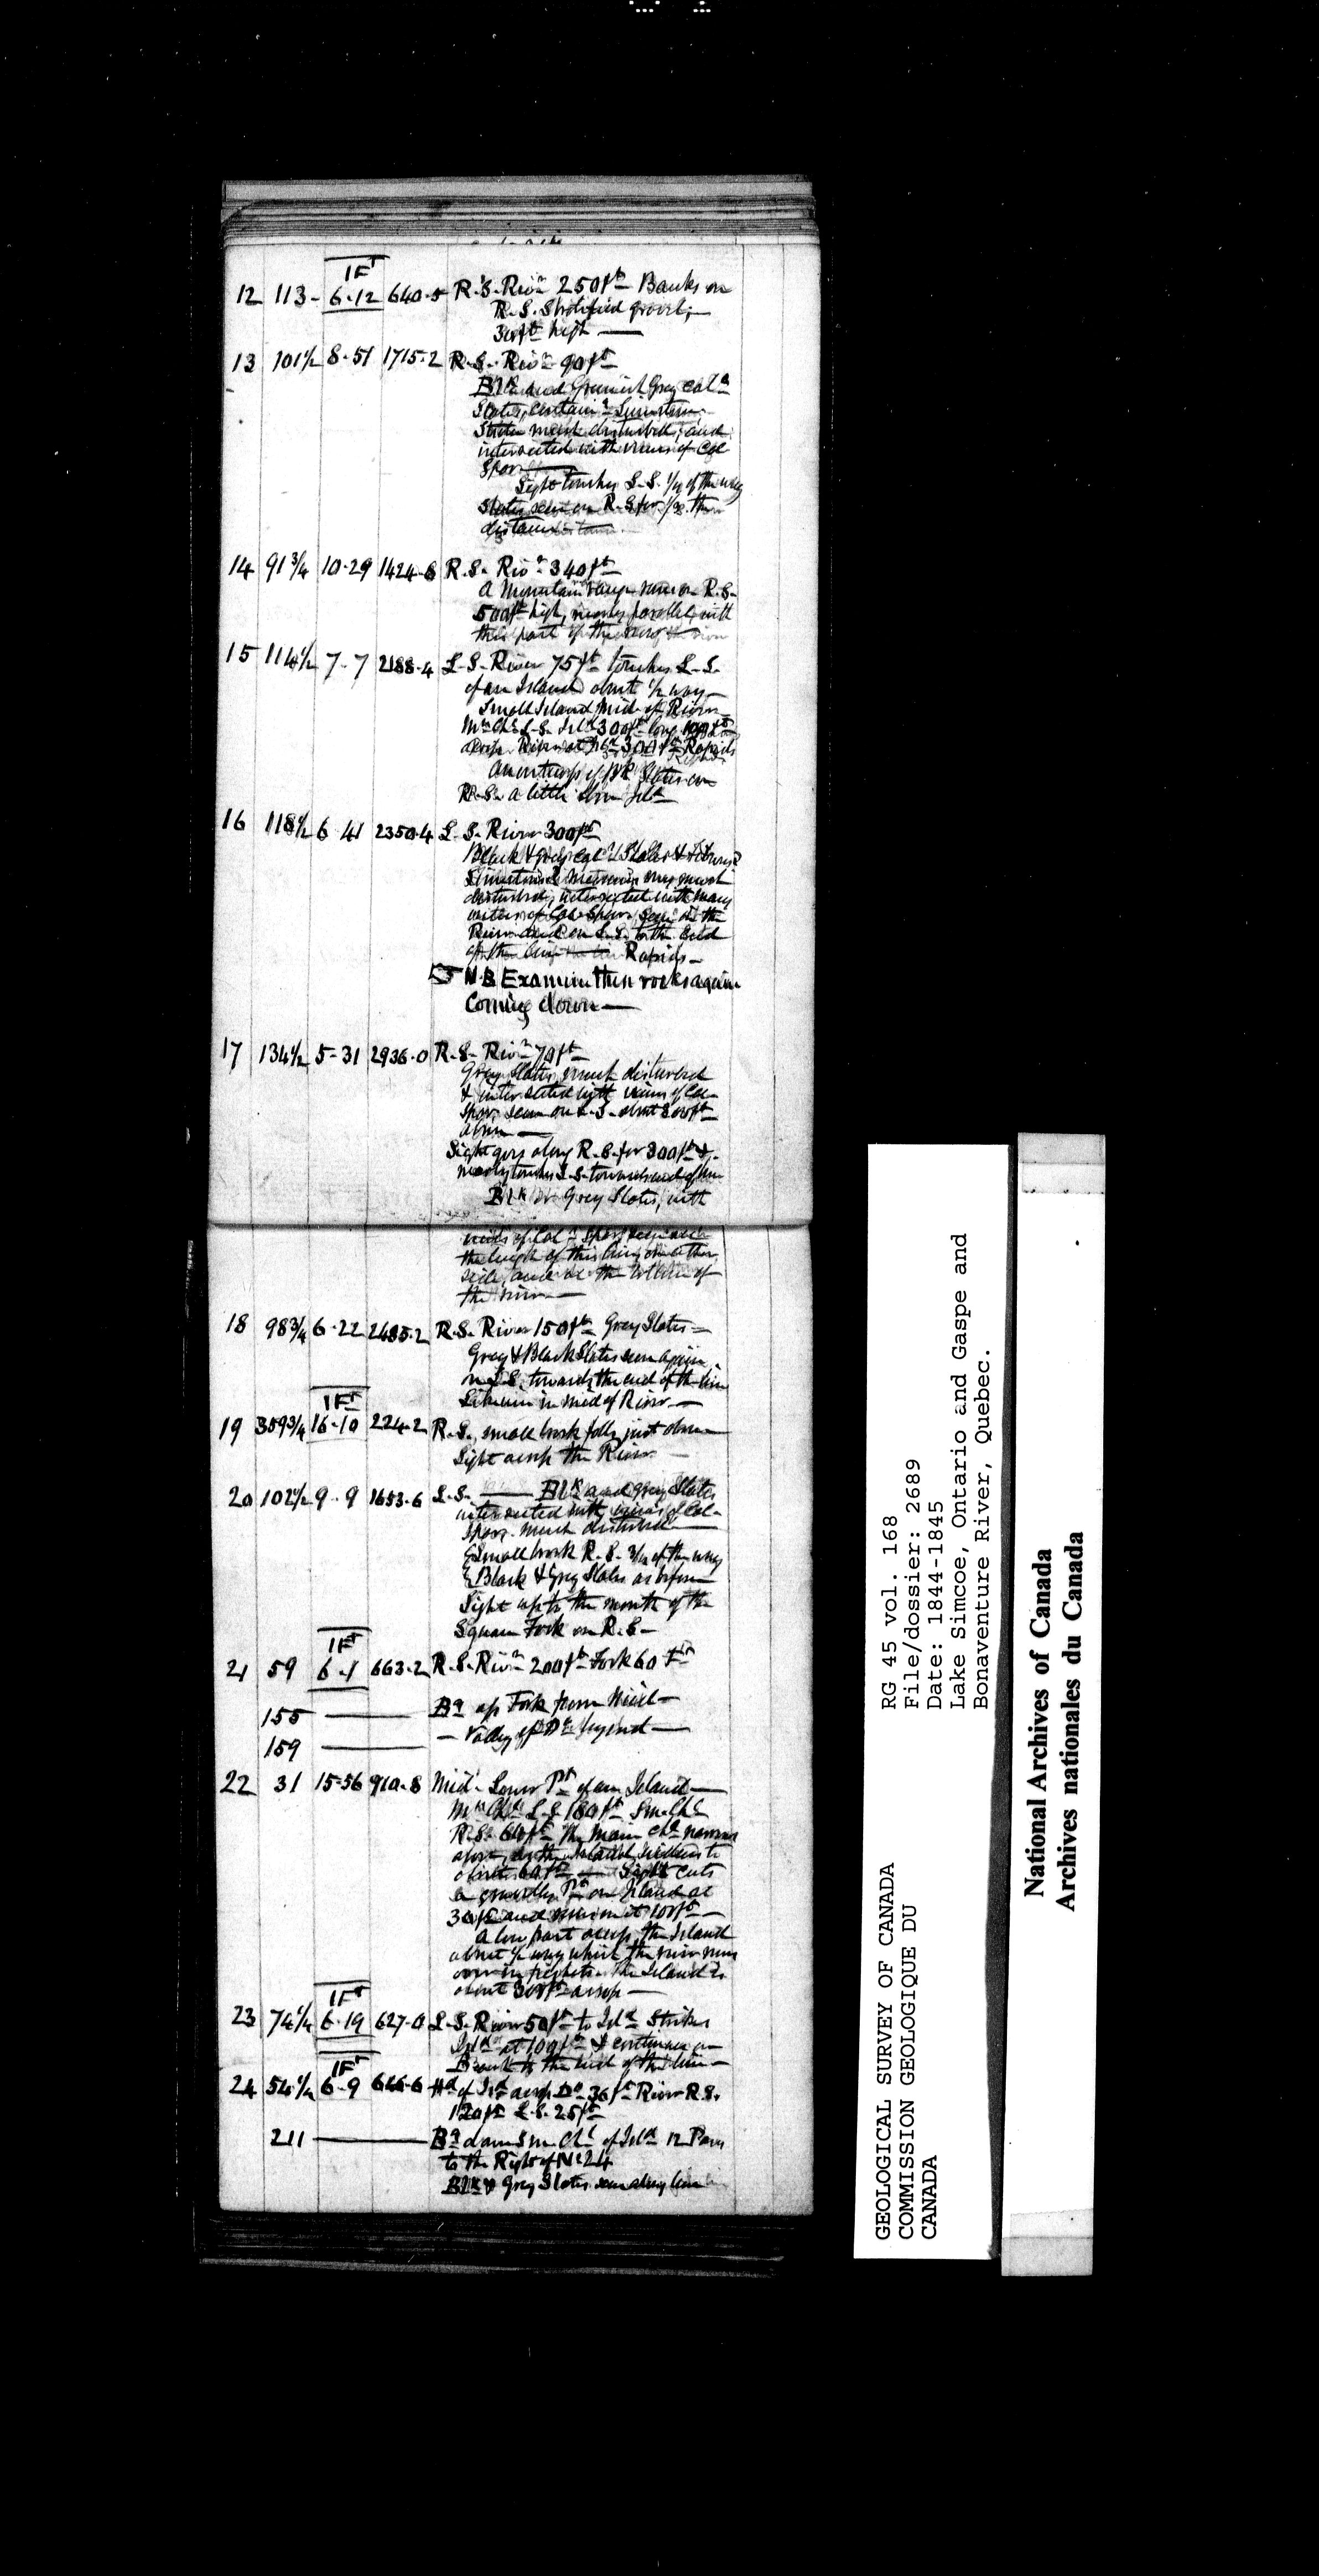 1Ft
12 113- 6-12 640-5 R.S. Rivr 250ft Banks on
R.S. Stratified gravel,
30ft high —
13 101½ 8-51 1715-2 R.S. Rivr 90ft
Blk and Greenish Grey calc
Slates, containg Limestone
Strata much disturbed, and
intersected with veins of Cal
Spar —
Sight touches L.S. ¼ of the way
Slates seen on R.S. for ½ the
distance
14 91¾ 10-29 1424-8 R.S. Rivr 340ft
A Mountain range runs on R.S.
500ft high, nearly parallel with
this part of the river
15 114½ 7-7 2188-4 L.S. River 75ft touches L.S.
of an Island about ½ way—
Small Island Mid. of River—
Mn Chl L.S. Isld 300ft long
across River at 300ft Rapids
An outcrop of Blk Slates on
R.S. a little abov Isld
16 118½ 6 41 2350-4 L.S. River 300ft
Black & grey calc Slates &
Limestone very much
disturbed, intersected with many
veins of Cal. Spar, seen in the
River and on L.S. to the end
of the line Rapids—
N.B Examine these rocks again
Coming down —
17 134½ 5-31 2936-0 R.S. Rivr 70ft
Grey Slates, much disturbed
& intersected with veins of Cal-
Spar, seen on L.S. about 800ft
above —
Sight goes along R.S. for 300ft &
nearly touches L.S. towards end of line
Blk & Grey Slates, with
veins of Calc Spar, seen all
the length of this line, on either
side, and in the bottom of
the river —
18 98¾ 6-22 2485-2 R.S. River 150ft Grey Slates—
Grey & Black Slates seen again
on L.S. towards the end of the line
in mid of River —
1Ft
19 359¾ 16-10 224-2 R.S. small brook falls just above
Sight across the River
20 102½ 9-9 1653-6 L.S. — Blk and grey Slates
intersected with veins of Cal-
Spar. Much disturbed
Small brook R.S. ¾ of the way
Black & Grey Slates as before
Sight up to the mouth of the
Square Fork on R.S—
1Ft
21 59 6-1 663-2 R.S. Rivr 200ft Fork 60 Ft
155 — Bg up Fork from Mid—
159 — Valley of Do beyond—
22 31 15-56 910-8 Mid. Lower Pt of an Island—
Mn Chl L.S. 180ft Sm. Chl
R.S. 60ft The Main Chl narrows
above, as the Island widens to
about 60ft — Sight cuts
a gravelly Pt on Island at
30ft and again at 100ft—
A low part across the Island
about ½ way which the river runs
over in freshets. The Island is
about 300ft across —
1Ft
23 74¼ 6-19 627-0 L.S. River 50ft to Isld Strikes
Isld at 100ft & continues on
Beach to the end of the line—
1Ft
24 54½ 6-9 646-6 Hd of Isld across Do 36ft River R.S.
120ft L.S. 25ft
211 — Bg down Sm. Chl of Isld 12 Paces
to the Right of No 24
Blk & Grey Slates seen along line
GEOLOGICAL SURVEY OF CANADA
COMMISSION GEOLOGIQUE DU
CANADA
RG 45 vol. 168
File/dossier: 2689
Date: 1844-1845
Lake Simcoe, Ontario and Gaspe and
Bonaventure River, Quebec.
National Archives of Canada
Archives nationales du Canada